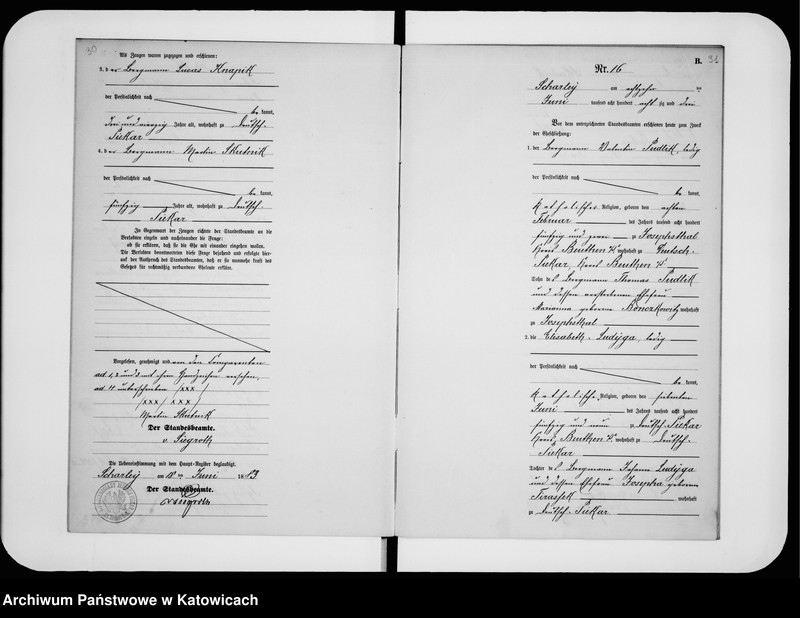 30
Als Zeugen waren zugezogen und erschienen:
3. der Bergmann Lucas Knapik
der Persönlichkeit nach
be kannt,
drei und vierzig Jahre alt, wohnhaft zu Deutsch-
Piekar
4. der Bergmann Martin Skutnik
der Persönlichkeit nach
be kannt,
fünfzig Jahre alt, wohnhaft zu Deutsch-
Piekar
In Gegenwart der Zeugen richtete der Standesbeamte an die
Verlobten einzeln und nacheinander die Frage:
ob sie erklären, daß sie die Ehe mit einander eingehen wollen.
Die Verlobten beantworteten diese Frage bejahend und erfolgte hier-
auf der Ausspruch des Standesbeamten, daß er sie nunmehr kraft des
Gesetzes für rechtmäßig verbundene Eheleute erkläre.
Vorgelesen, genehmigt und von den Comparenten
ad. 1, 2 und 3 mit ihren Handzeichen versehen,
ad. 4 unterschrieben /xxx/
/xxx/ xxx/
Martin Skutnik
Der Standesbeamte.
v. Siegroth
Die Uebereinstimmung mit dem Haupt-Register beglaubigt.
Scharley am 18 ten Juni 1883
Der Standesbeamte.
v. Siegroth
B.
31
Nr. 16
Scharley am achtzehn ten
Juni tausend acht hundert acht zig und drei
Vor dem unterzeichneten Standesbeamten erschienen heute zum Zweck
der Eheschließung:
1. der Bergmann Valentin Pudlik, ledig
der Persönlichkeit nach
be kannt,
katholischer Religion, geboren den achten
Februar des Jahres tausend acht hundert
fünfzig und zwei zu Josephsthal
Kreis Beuthen wohnhaft zu Deutsch-
Piekar, Kreis Beuthen
Sohn des Bergmann Thomas Pudlik
und dessen verstorbenen Ehefrau
Marianna geborene wohnhaft
zu Josephsthal
2. die Elisabeth Ladyga, ledig
der Persönlichkeit nach
be kannt,
katholischer Religion, geboren den siebenten
Juni des Jahres tausend acht hundert
fünfzig und neun zu Deutsch-Piekar
Kreis Beuthen wohnhaft zu Deutsch-
Piekar
Tochter des Bergmann Johann Ladyga
und dessen Ehefrau Josepha geborene
wohnhaft
zu Deutsch-Piekar
Archiwum Państwowe w Katowicach